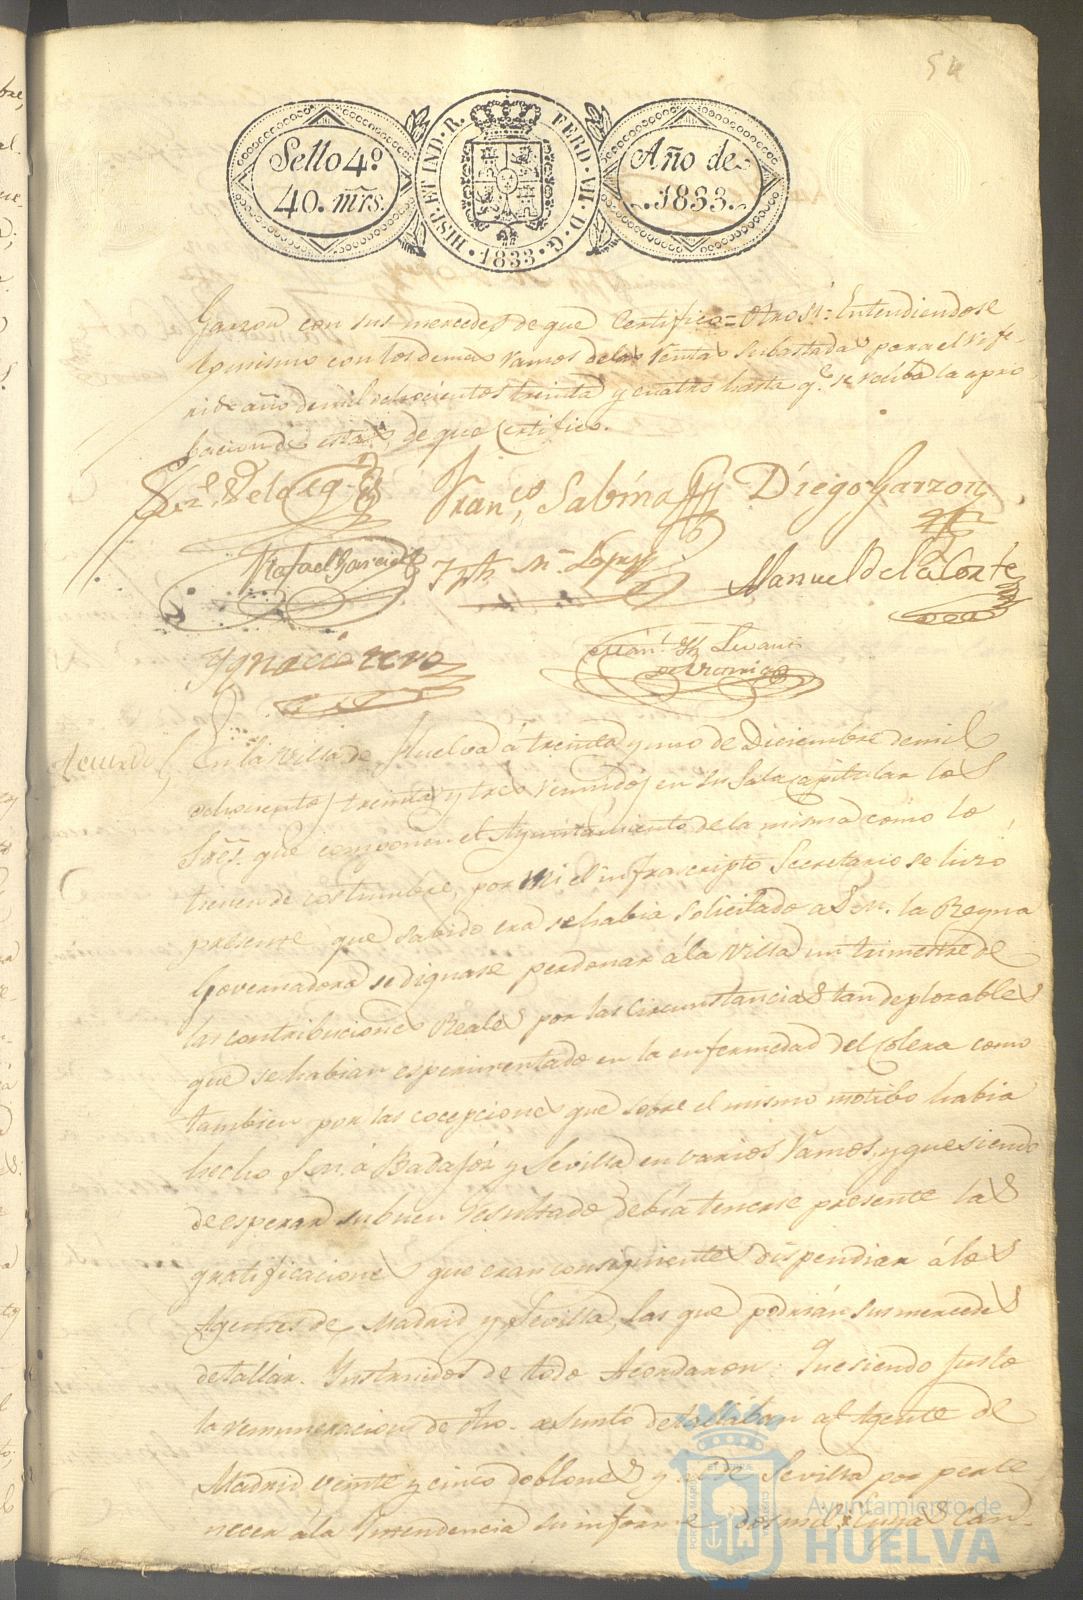 54
Sello 4º
40. mrs.
HISP. ET IND. R. FERD. VII. D. G.
1833.
Año de
1833.
Garzon con sus mercedes, de que Certifico = Otro si: Entendiendose
lo mismo con los demas ramos de las rentas subastadas para el refe-
rido año de mil ochocientos treinta y cuatro hasta q.e se reciba la apro
bacion de estas, de que Certifico.
Franco. Sabina Diego Garzon
Rafael Garcia Lopez Manuel De la Corte
Ygnacio
Acuerdo
En la Villa de Huelva á treinta y uno de Diciembre de mil
ochocientos treinta y tres reunidos en su Sala capitular los
Sres. que componen el Ayuntamiento de la misma como lo
tienen de costumbre, por mi el infrascripto Secretario se hizo
presente que sabido era se habia solicitado a S.M. la Reyna
Governadora se dignase perdonar á la Villa un trimestre de
las contribuciones Reales por las circunstancias tan deplorables
que se habian esperimentado en la enfermedad del Colera como
tambien por las cecepciones que sobre el mismo motibo habia
hecho S.M. á Badajóz y Sevilla en varios ramos, y que siendo
de esperar su buen resultado debía tenerse presente las
gratificaciones que eran consiguientes dispendiar á los
Agentes de Madrid y Sevilla, las que podrián sus mercedes
detallar. Ynstruidos de todo Acordaron: Que siendo justo
la remuneracion de dho. asunto detallaban al Agente de
Madrid veinte y cinco doblones y al de Sevilla por perte
necer á la Yntendencia su informe dos mil
Ayuntamiento de
HUELVA